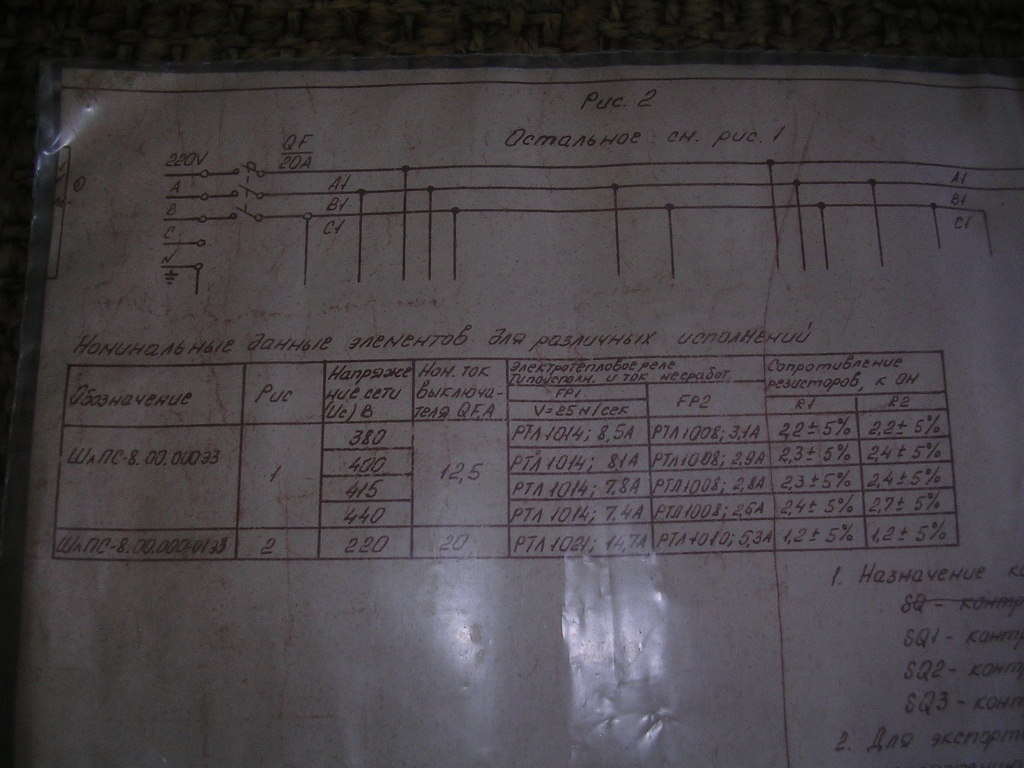 Рис. 2
Остальное см. рис. 1
QF
20A
220V
A
B
C
N
A1
B1
C1
A1
B1
C1
Номинальные данные элементов для различных исполнений
Обозначение
Рис
Напряже
ние сети
(Uc) В
Ном. ток
выключа-
теля QF, А
Электротепловое реле
Типоисполн. и ток несработ.
FP1
V=25м/сек
FP2
Сопротивление
резисторов, к ОН
R1
R2
ШлПС-8.00.000ЭЗ
1
380
12,5
РТЛ 1014; 8,5А
РТЛ 1008; 3,1А
2,2 ± 5%
2,2 ± 5%
400
РТЛ 1014; 8,1А
РТЛ 1008; 2,9А
2,3 ± 5%
2,4 ± 5%
415
РТЛ 1014; 7,8А
РТЛ 1008; 2,8А
2,3 ± 5%
2,4 ± 5%
440
РТЛ 1014; 7,4А
РТЛ 1008; 2,6А
2,4 ± 5%
2,7 ± 5%
ШлПС-8.00.000-01ЭЗ
2
220
20
РТЛ 1021; 14,7А
РТЛ 1010; 5,3А
1,2 ± 5%
1,2 ± 5%
1. Назначение ко
SQ - контр
SQ1 - контр
SQ2 - контр
SQ3 - конт
2. Для экспорт